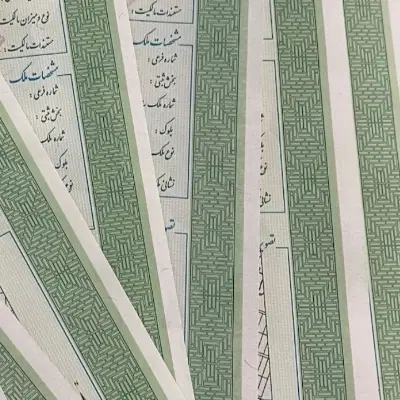 نوع و میزان مالکیت
مستندات مالکیت :
مشخصات ملک
شماره فرعی :
بخش ثبتی :
شماره ملک
بلوک :
مستندات مالکیت :
مشخصات ملک
شماره فرعی :
بخش ثبتی :
شماره ملک
بلوک :
نوع ملک
نشانی
تصویر
تصویر